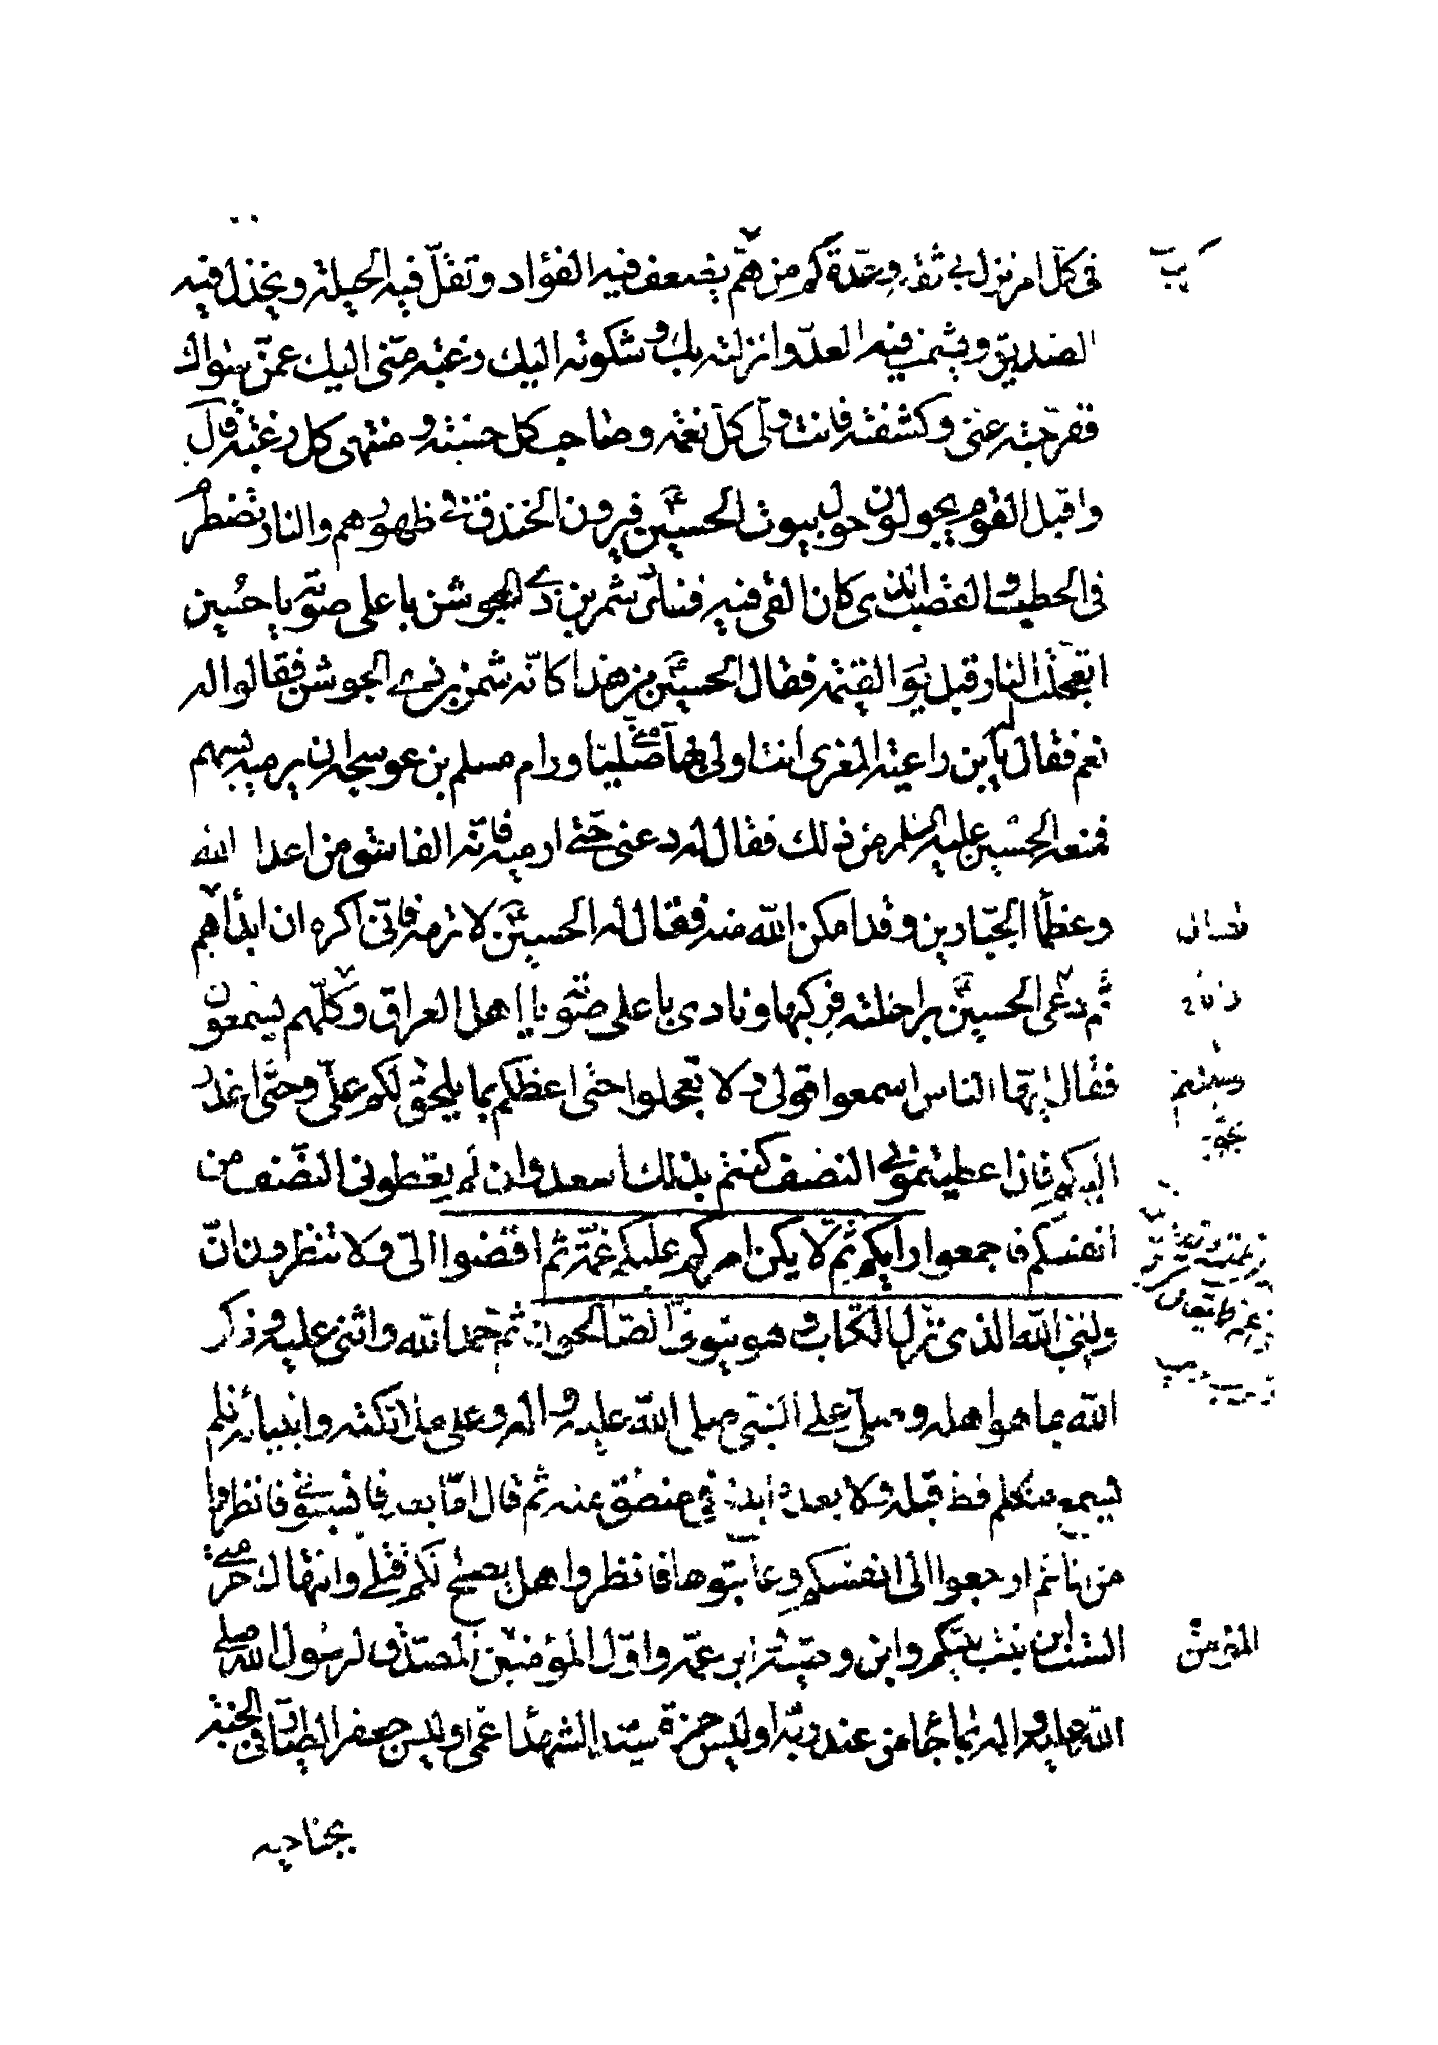 فى كلّ امر نزل بى ثقه وعدّة كم من همّ يضعف فيه الفؤاد و تقلّ فيه الحيلة و يخذل فيه
الصديق و يشمت فيه العدّو انزلته بك و شكوته اليك رغبة منّى اليك عمّن سواك
ففرّجته عنى وكشفته فانت ولّى كلّ نعمة و صاحب كل حسنة و منتهى كل رغبة قال
و اقبل القوم يجولون حول بيوت الحسين فيرون الخندق فى ظهورهم والنار تضطرم
فى الحطب والقصب الذى كان القى فيه فنادى شمر بن ذى الجوشن باعلى صوته يا حسين
اتعجلت النار قبل يوم القيمة فقال الحسين من هذا كانّه شمر بن ذى الجوشن فقالوا له
نعم فقال له يابن راعية المعزى انت اولى بها صليا ورام مسلم بن عوسجه ان يرميه بسهم
فمنعه الحسين عليه السلم من ذلك فقال له دعنى حتى ارميه فانّه الفاسق من اعدا الله
وعظما الجبّارين وقد امكن الله منه فقال له الحسين لا ترمه فانّى اكره ان ابداهم
ثم دعى الحسين براحلته فركبها ونادى باعلى صوته يا اهل العراق وكلّهم يسمعون
فقال ايّها الناس اسمعوا قولى ولا تعجلوا حتى اعظكم بما يلحق لكم علىّ وحتّى اعذر
اليكم فان اعطيتمونى النصف كنتم بذلك اسعد وان لم يعطونى النصف من
انفسكم فاجمعوا رايكم ثم لا يكن امركم عليكم غمّة ثم اقضوا الىّ ولا تنظرون انّ
وليى الله الذى نزل الكتاب و هو يتولى الصّالحون ثم حمد الله واثنى عليه و ذكر
الله بما هو اهله و صلى على النبى صلى الله عليه و اله وعلى ملائكته وانبيائه فلم
يسمع متكلم قط قبله ولا بعده ابلغ فى منطق منه ثم قال امّا بعد فانسبونى فانظروا
من انا ثم ارجعوا الى انفسكم وعاتبوها فانظروا هل يصلح لكم قتلى وانتهاك حرمتى
الست ابن بنت نبيّكم وابن وصيّه ابن عمّه واوّل المؤمنين المصدّق لرسول الله صلى
الله عليه و اله بما جا من عند ربّه اوليس حمزة سيّد الشهدا عمى اوليس جعفر الطيار فى الجنة
بجناحيه